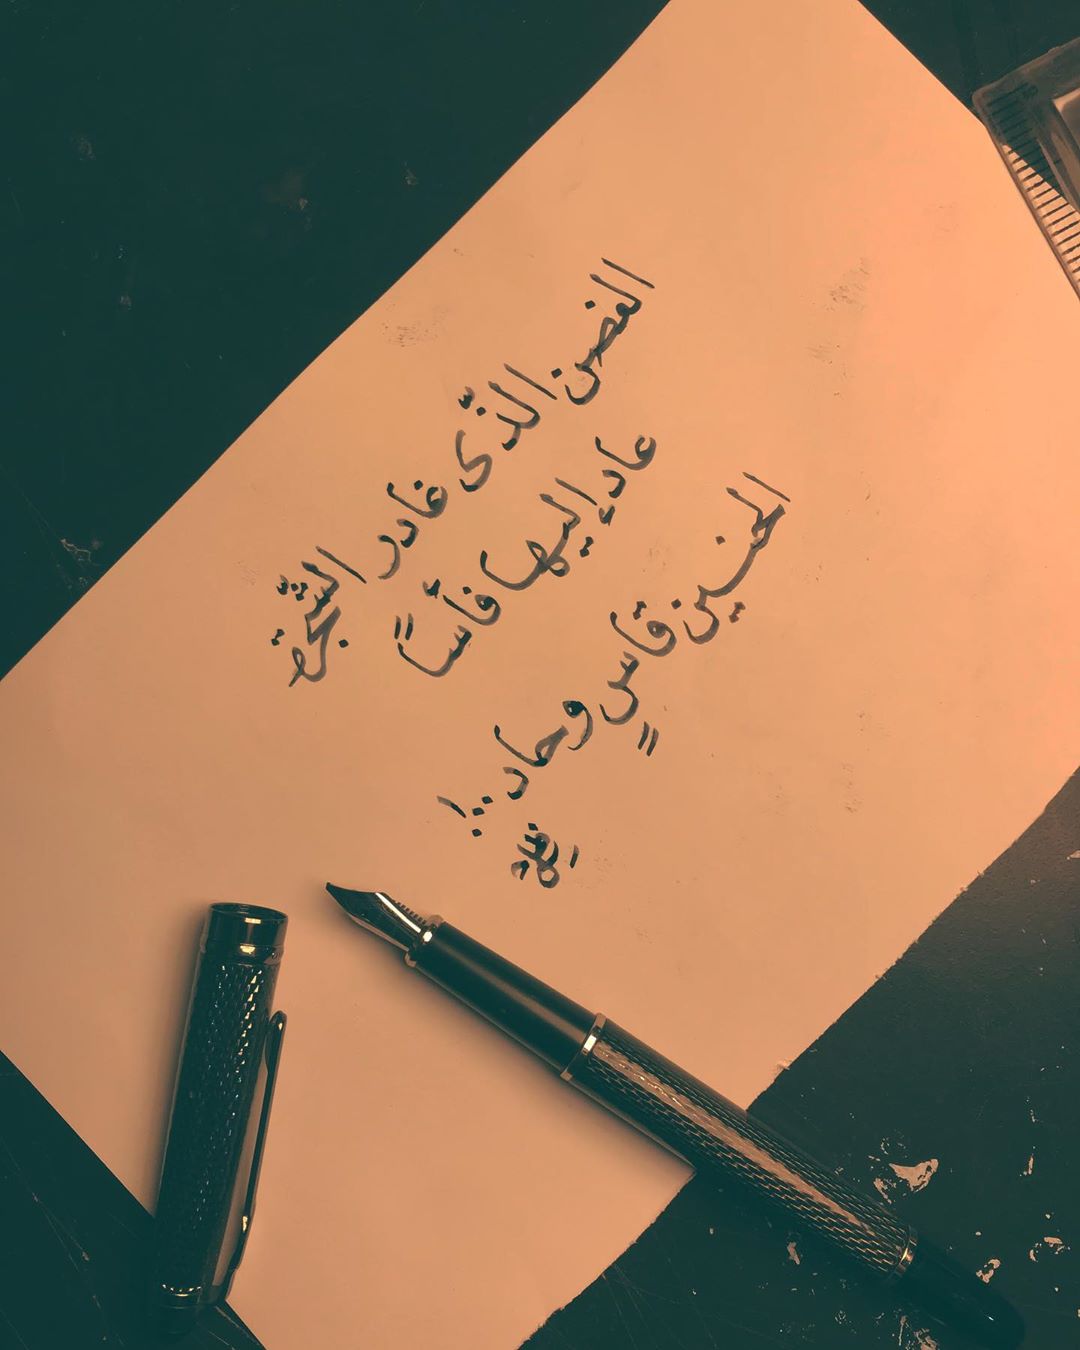 الغصن الذّي غادر الشّجرة
عاد إليها فأسًا
الحنين قاسٍ وحاد..!